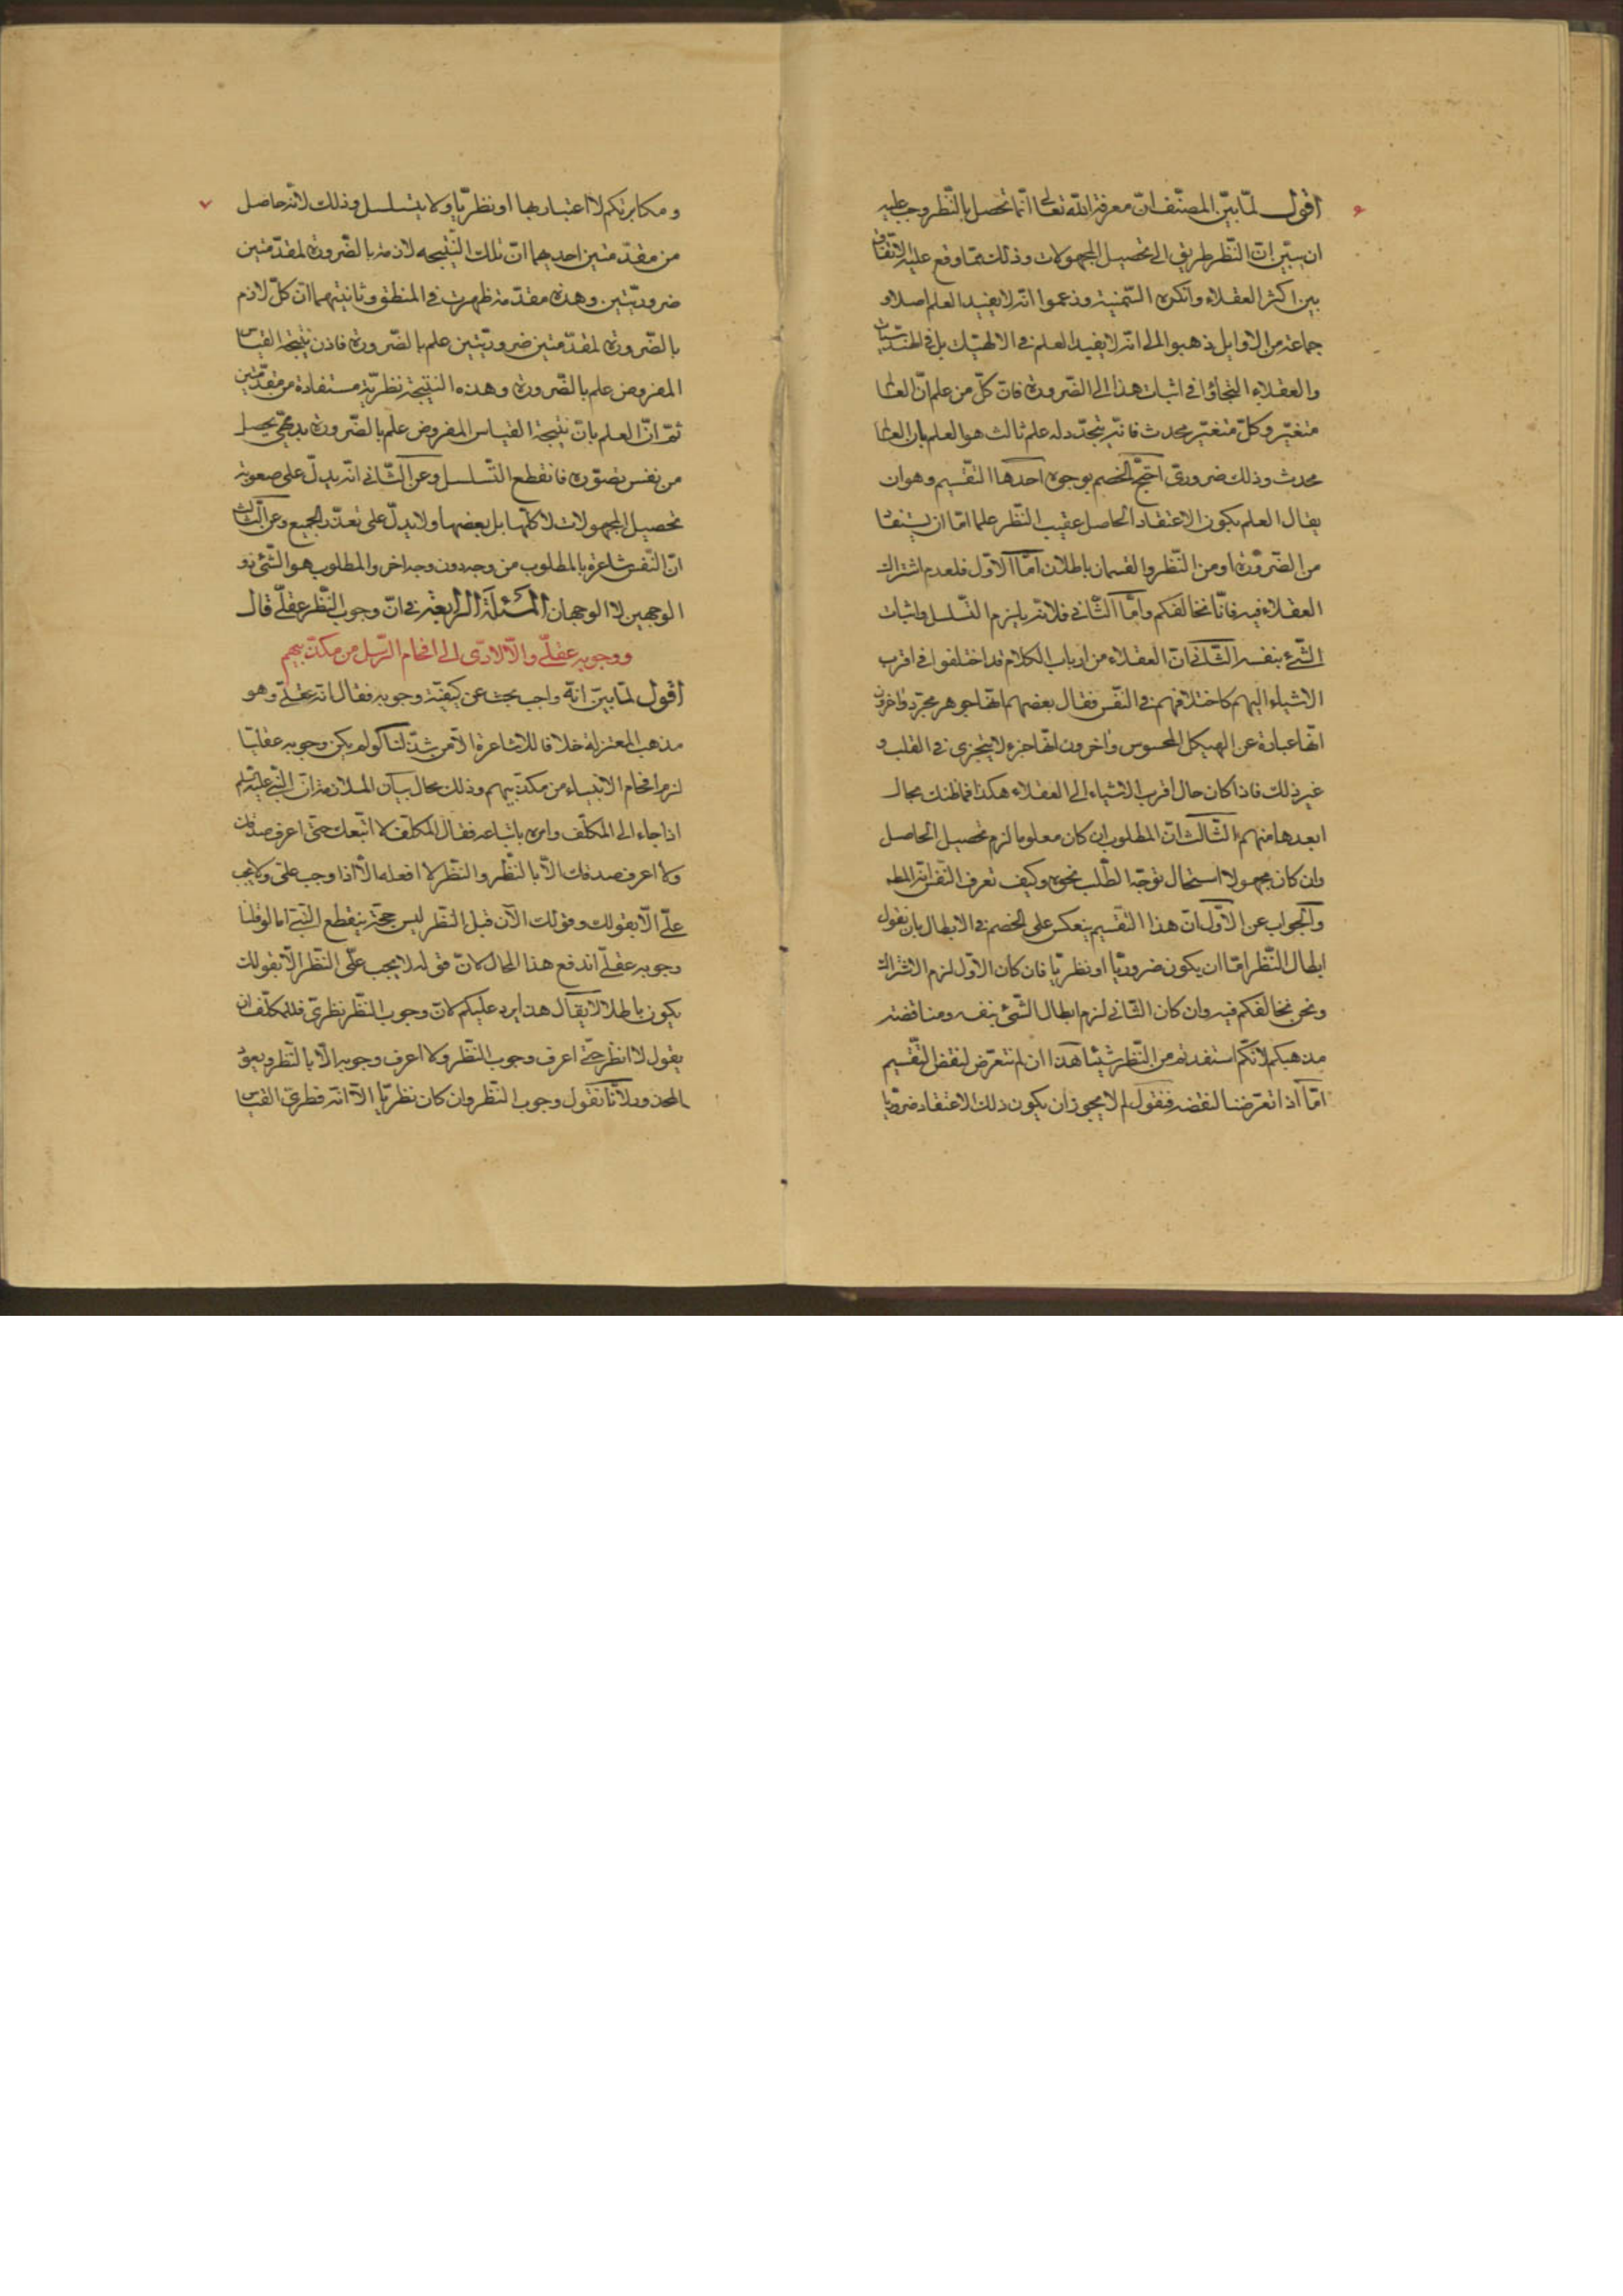 اقول لمّا بيّن المصنّف انّ معرفة الله تعالى انّما تحصل بالنّظر وجب عليه
ان يبيّن انّ النّظر طريق الى تحصيل المجهولات وذلك ممّا وقع عليه الاتّفاق
بين اكثر العقلاء وانكره السّمنية وزعموا انّه لا يفيد العلم اصلا و
جماعة من الاوايل ذهبوا الى انّه لا يفيد العلم فى الالهيّات بل فى الهندسيّات
والعقلاء التجاؤا فى اثبات هذا الى الضّرورة فانّ كلّ من علم انّ العالم
متغيّر وكلّ متغيّر محدث فانّه يتجدّد له علم ثالث هو العلم بان العالم
محدث وذلك ضرورىّ احتجّ الخصم بوجوه احدها التّقسيم وهو ان
يقال العلم بكون الاعتقاد الحاصل عقيب النّظر علما امّا ان يستفاد
من الضّرورة او من النّظر والقسمان باطلان امّا الاوّل فلعدم اشتراك
العقلاء فيه فانّا نخالفكم وامّا الثّانى فلانّه يلزم التّسلسل واثبات
الشّئ بنفسه الثّانى انّ العقلاء من ارباب الكلام قد اختلفوا فى اقرب
الاشياء اليهم كاختلافهم فى النّفس فقال بعضهم انّها جوهر مجرّد واخرون
انّها عبارة عن الهيكل المحسوس واخرون انّها جزء لا يتجزى فى القلب و
غير ذلك فاذا كان حال اقرب الاشياء الى العقلاء هكذا فما ظنك بحال
ابعدها منهم الثّالث انّ المطلوب ان كان معلوما لزم تحصيل الحاصل
وان كان مجهولا استحال توجّه الطّلب نحوه وكيف تعرف النّفس انّه المط
والجواب عن الاوّل انّ هذا التّقسيم ينعكس على الخصم فى الابطال بان نقول
ابطال النّظر امّا ان يكون ضروريّا او نظريّا فان كان الاوّل لزم الاشتراك
ونحن نخالفكم فيه وان كان الثّانى لزم ابطال الشّئ بنفسه ومناقضة
مذهبكم لانّكم استفدتم من النّظر شيئا هذا ان لم نتعرّض لنقض التّقسيم
امّا اذا تعرّضنا لنقضه فنقول لم لا يجوز ان يكون ذلك الاعتقاد ضروريّا
ومكابرتكم لا اعتبار بها او نظريّا ولا يتسلسل وذلك لانّه حاصل
من مقدّمتين احديهما انّ تلك النّتيجه لازمة بالضّرورة لمقدّمتين
ضروريّتين وهذه مقدّمة ظهرت فى المنطق وثانيتهما انّ كلّ لازم
بالضّرورة لمقدّمتين ضروريّتين علم بالضّرورة فاذن نتيجة القياس
المفروض علم بالضّرورة وهذه النتيجة نظريّة مستفادة من مقدّمتين
ثمّ انّ العلم بانّ نتيجة القياس المفروض علم بالضّرورة بديهىّ يحصل
من نفس تصوّره فانقطع التّسلسل وعن الثّانى انّه يدلّ على صعوبة
تحصيل المجهولات لا كلّها بل بعضها ولا يدلّ على تعذّر الجميع وعن الثّالث
انّ النّفس شاعرة بالمطلوب من وجه دون وجه اخر والمطلوب هو الشّئ ذو
الوجهين لا الوجهان المسئلة الرابعة فى انّ وجوب النّظر عقلّى قال
ووجوبه عقلّى والّا لادّى الى افحام الرّسل من مكذّبيهم
اقول لمّا بيّن انّه واجب بحث عن كيفيّة وجوبه فقال انّه عقلّى وهو
مذهب المعتزلة خلافا للاشاعرة الّا من شذّ لنا لو لم يكن وجوبه عقليّا
لزم افحام الانبياء من مكذّبيهم وذلك محال بيان الملازمة انّ النّبى عليه السّلم
اذا جاء الى المكلّف وامره باتباعه فقال المكلّف لا اتّبعك حتّى اعرف صدقك
ولا اعرف صدقك الّا بالنّظر والنّظر لا افعله الّا اذا وجب علّى ولا يجب
علّى الّا بقولك وقولك الآن قبل النّظر ليس حجّة ينقطع النّبى اما لو قلنا
وجوبه عقلّى اندفع هذا المحال لانّ قوله لا يجب علّى النّظر الّا بقولك
يكون باطلا لا يقال هذا يرد عليكم لانّ وجوب النّظر نظرىّ فللمكلّف ان
يقول لا انظر حتّى اعرف وجوب النّظر ولا اعرف وجوبه الّا بالنّظر ويعود
المحذور لانّا نقول وجوب النّظر وان كان نظريّا الّا انّه فطرىّ القياس